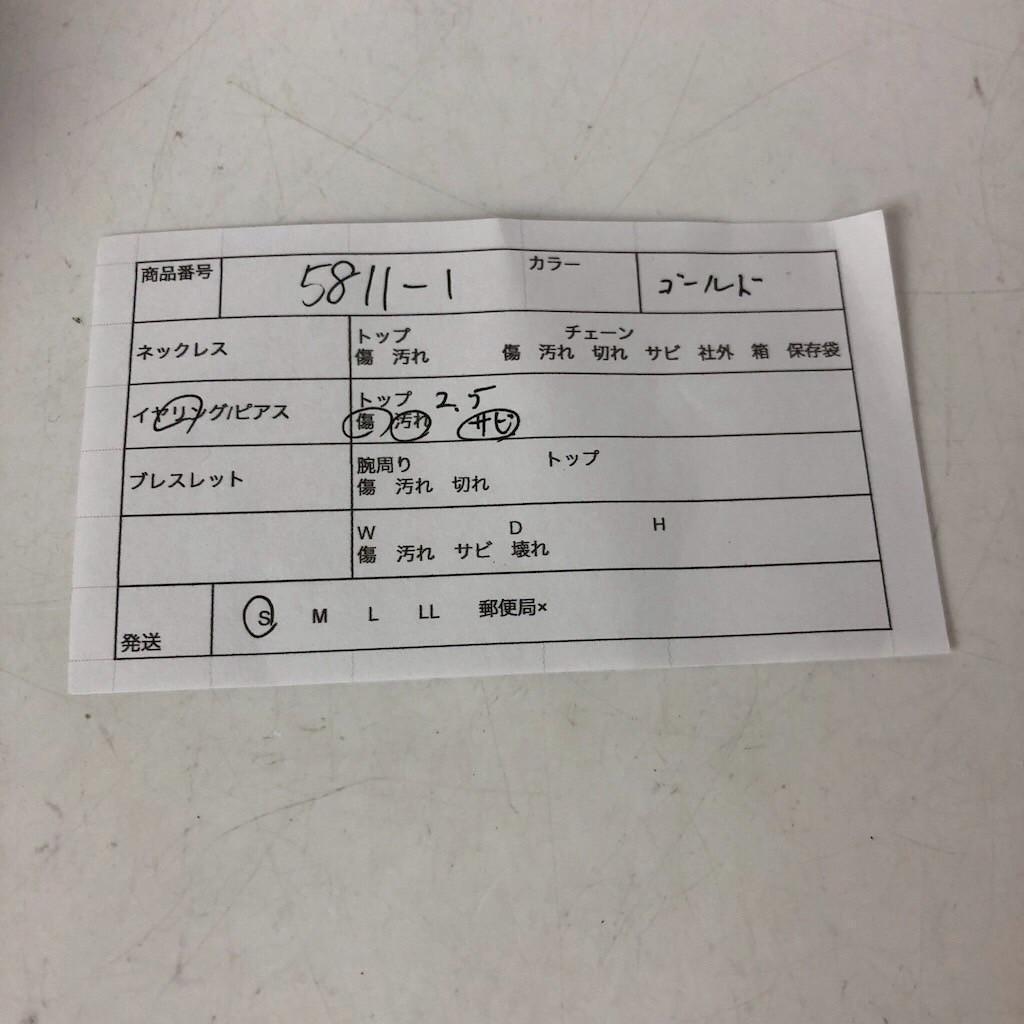 商品番号 5811-1 カラー ゴールド
ネックレス トップ チェーン
傷 汚れ 傷 汚れ 切れ サビ 社外 箱 保存袋
イヤリング/ピアス トップ 2.5
傷 汚れ サビ
ブレスレット 腕周り トップ
傷 汚れ 切れ
W D H
傷 汚れ サビ 壊れ
発送 S M L LL 郵便局×